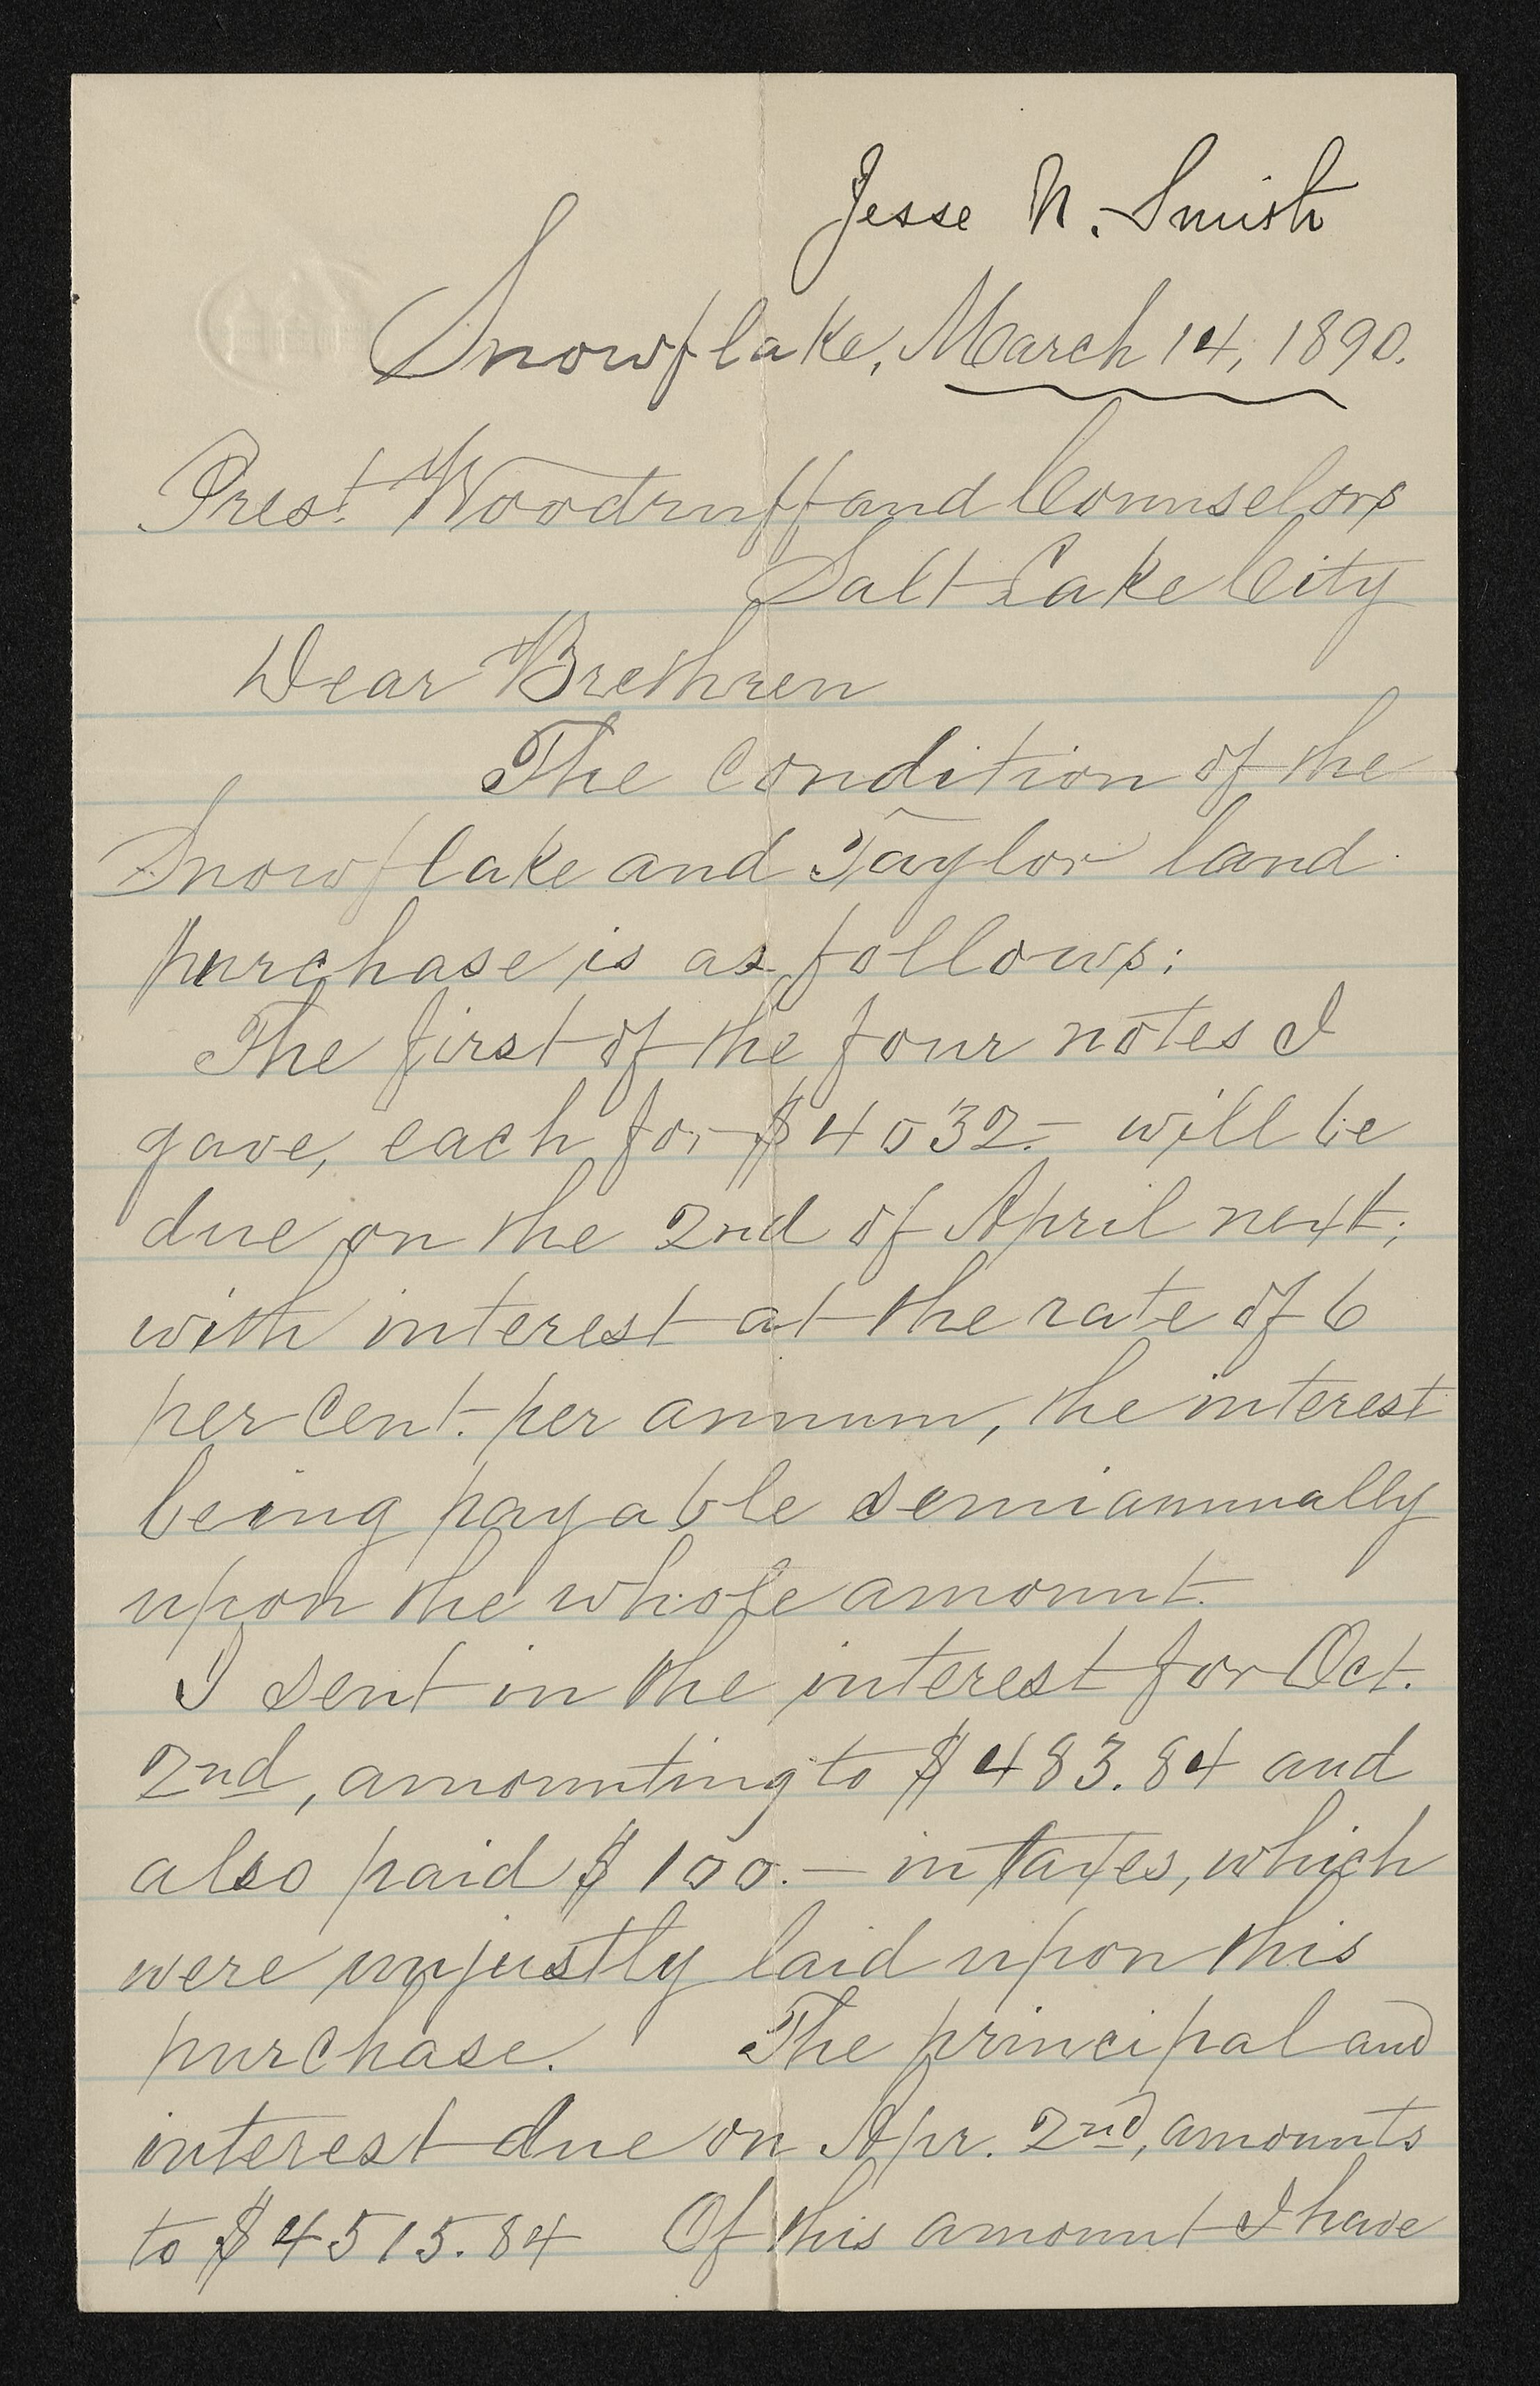 Jesse N. Smith
Snowflake, March 14, 1890.
Prest. Woodruff and Counselors
Salt Lake City
Dear Brethren
The condition of the
Snowflake and Taylor land
purchase is as follows:
The first of the four notes I
gave, each for $4032.- will be
due on the 2nd of April next;
with interest at the rate of 6
per cent. per annum, the interest
being payable semiannually
upon the whole amount.
I sent in the interest for Oct.
2nd, amounting to $483.84 and
also paid $100.- in taxes, which
were unjustly laid upon this
purchase. The principal and
interest due on Apr. 2nd, amounts
to $4515.84 Of this amount I have